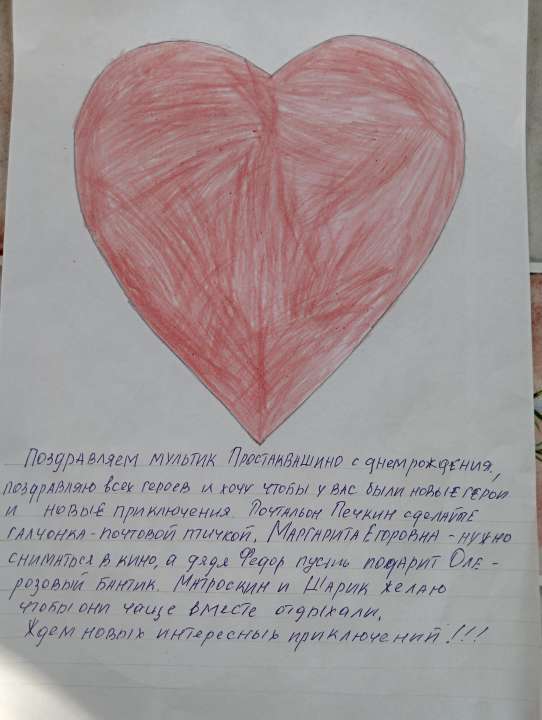 Поздравляем мультик Простаквашино с днем рождения,
поздравляю всех героев и хочу чтобы у вас были новые герои
и новые приключения. Почтальон Печкин сделайте
галчонка-почтовой птичкой, Маргарита Егоровна - нужно
сниматься в кино, а дядя Федор пусть подарит Оле -
розовый бантик. Матроскин и Шарик желаю
чтобы они чаще вместе отдыхали.
Ждем новых интересных приключений!!!